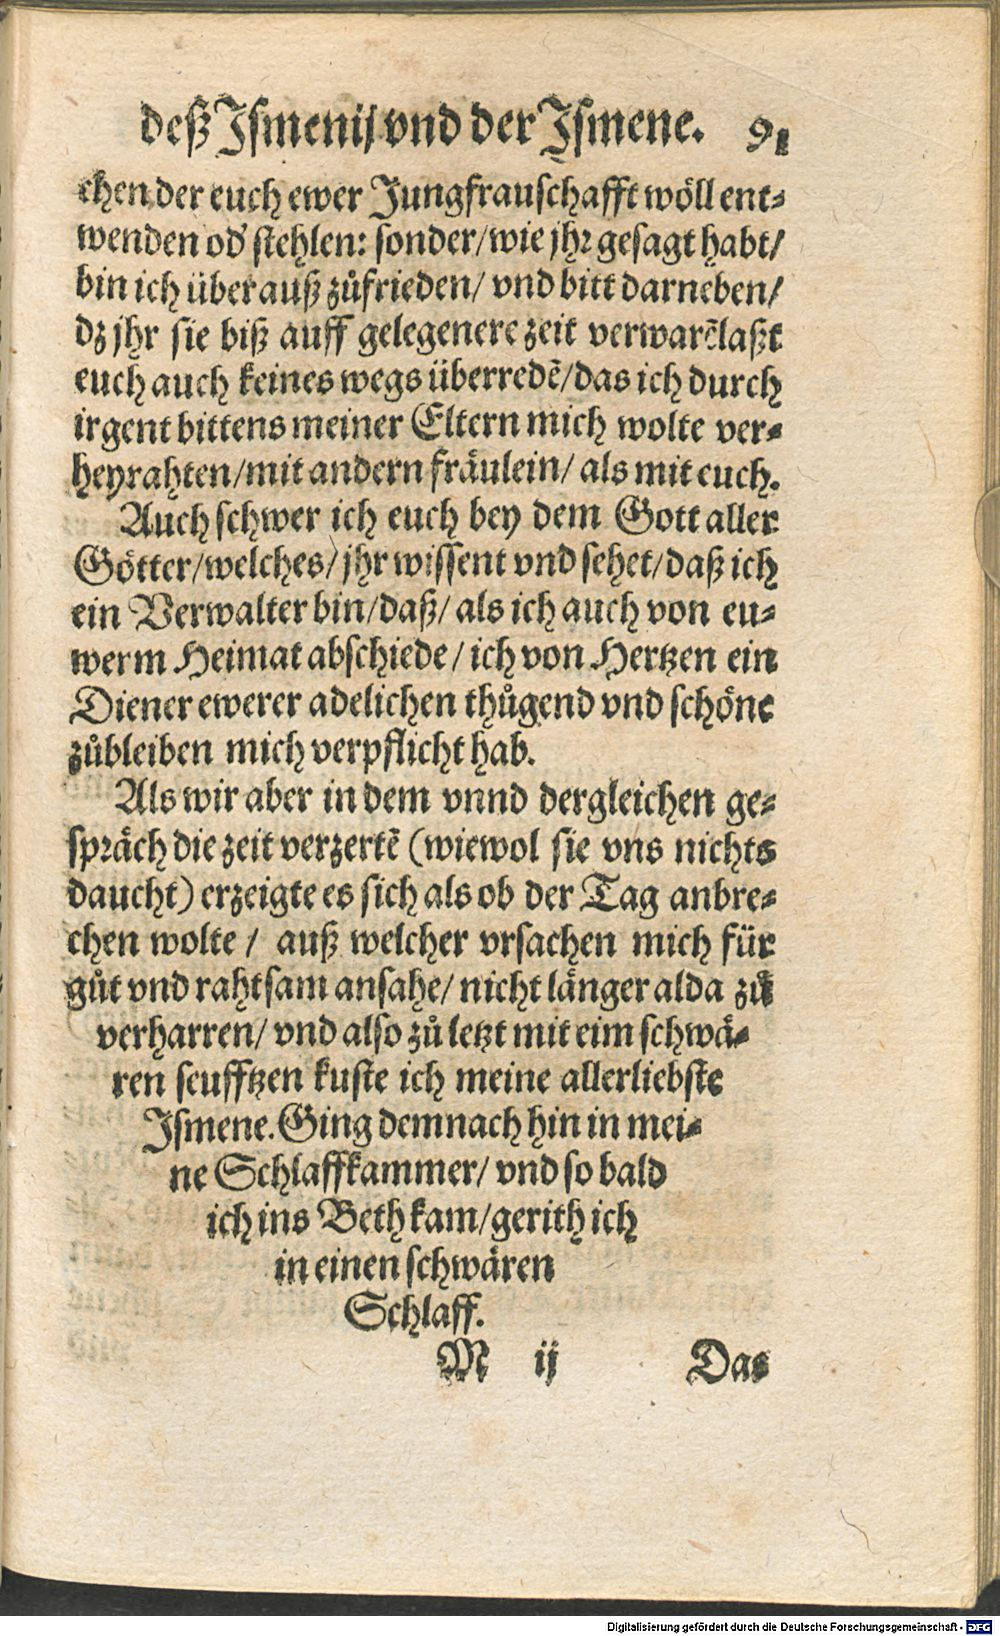 deß Jsmenij vnd der Jsmene. 91
chen der euch ewer Jungfrauschafft wöll ent⸗
wenden od' stehlen: sonder/wie jhr gesagt habt/
bin ich über auß zůfrieden/ vnd bitt darneben/
dz jhr sie biß auff gelegenere zeit verwarẽlaßt
euch auch keines wegs überredẽ/das ich durch
irgent bittens meiner Eltern mich wolte ver⸗
heyrahten/mit andern fräulein/ als mit euch.
Auch schwer ich euch bey dem Gott aller
Götter/welches/jhr wissent vnd sehet/daß ich
ein Verwalter bin/daß/ als ich auch von eu⸗
werm Heimat abschiede/ ich von Hertzen ein
Diener ewerer adelichen thůgend vnd schöne
zůbleiben mich verpflicht hab.
Als wir aber in dem vnnd dergleichen ge⸗
spräch die zeit verzertẽ (wiewol sie vns nichts
daucht) erzeigte es sich als ob der Tag anbre⸗
chen wolte/ auß welcher vrsachen mich für
gůt vnd rahtsam ansahe/ nicht länger alda zů
verharren/ vnd also zů letzt mit eim schwä⸗
ren seufftzen kuste ich meine allerliebste
Jsmene. Ging demnach hin in mei⸗
ne Schlaffkammer/ vnd so bald
ich ins Beth kam/gerith ich
in einen schwären
Schlaff.
M ij Das
Digitalisierung gefördert durch die Deutsche Forschungsgemeinschaft - DFG